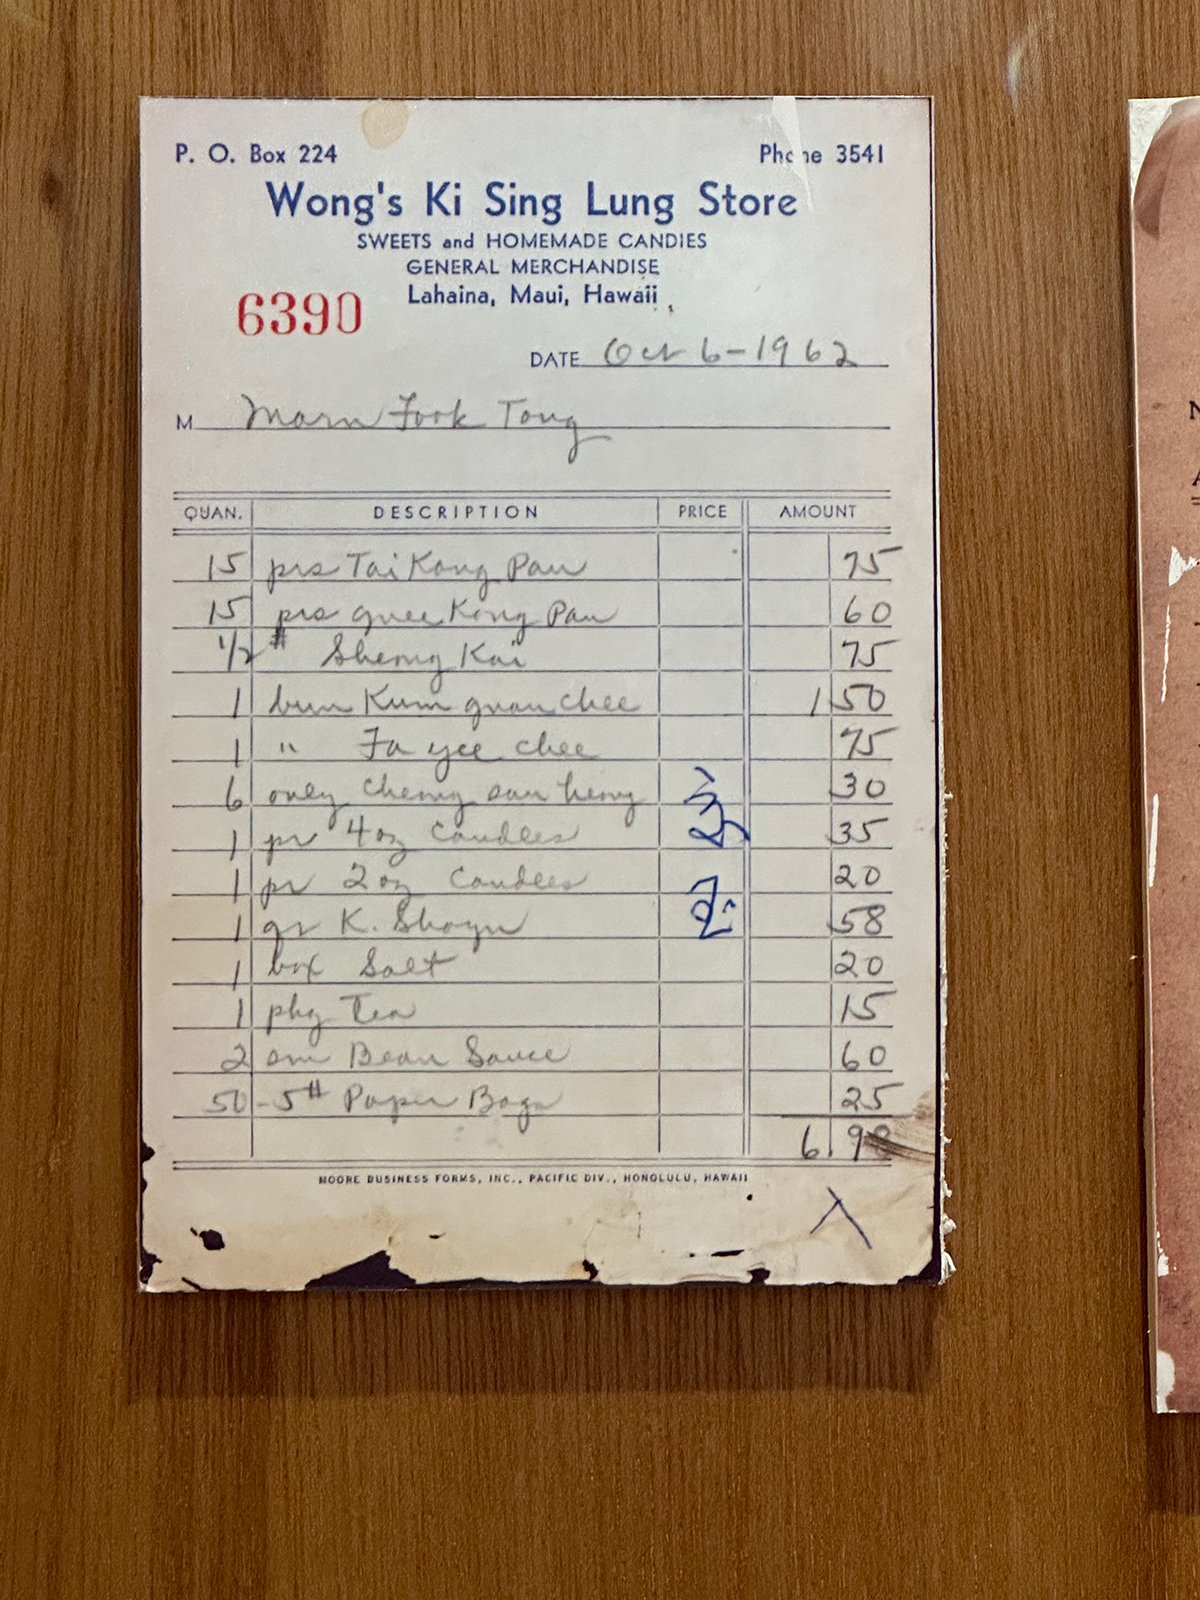 P. O. Box 224 Phone 3541
Wong's Ki Sing Lung Store
SWEETS and HOMEMADE CANDIES
GENERAL MERCHANDISE
6390 Lahaina, Maui, Hawaii
DATE Oct 6-1962
M Marn Fook Tong
QUAN. DESCRIPTION PRICE AMOUNT
15 prs Tai Kong Pau 75
15 prs quee Kong Pau 60
1/2 # Sheong Kai 75
1 bun Kum quan chee 1 50
1 " Fa yee chee 75
6 only cheong sau heong 30
1 pr 4 oz Candles 35
1 pr 2 oz Candles 20
1 qr K. Shoyu 58
1 box Salt 20
1 pkg Tea 15
2 sm Bean Sauce 60
50 - 5# Paper Bags 25
6.98
MOORE BUSINESS FORMS, INC., PACIFIC DIV., HONOLULU, HAWAII